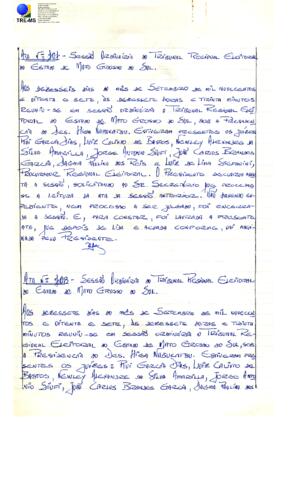 TRE-MS
Ata nº 707 - Sessão Ordinária do Tribunal Regional Eleitoral
do Estado de Mato Grosso do Sul.
Aos dezesseis dias do mês de Setembro de mil novecentos
e oitenta e sete, às dezessete horas e trinta minutos
reuniu-se em sessão ordinária o Tribunal Regional Elei
toral do Estado de Mato Grosso do Sul, sob a Presidên
cia do Des. Higa Nabukatsu. Estiveram presentes os Juízes
Rui Garcia Dias, Luiz Calixto de Bastos, Wenley Alexandre da
Silva Amarilha, Jorge Antonio Siufi, José Carlos Brandes
Garcia, Jásam Paulino dos Reis e Luiz de Lima Stefanini,
Procurador Regional Eleitoral. O Presidente declarou aber
ta a sessão, solicitando ao Sr. Secretário que proceda
se a leitura da ata da sessão anterior. Não havendo ex
pediente, nem processo a ser julgado, foi encerra
da a sessão. E, para constar, foi lavrada a presente
ata, que depois de lida e achada conforme, vai assi
nada pelo Presidente.
Ata nº 708 - Sessão Ordinária do Tribunal Regional Eleitoral
do Estado de Mato Grosso do Sul.
Aos dezessete dias do mês de Setembro de mil novecen
tos e oitenta e sete, às dezessete horas e trinta
minutos, reuniu-se em sessão ordinária o Tribunal Re
gional Eleitoral do Estado de Mato Grosso do Sul, sob
a Presidência do Des. Higa Nabukatsu. Estiveram pre
sentes os Juízes: Rui Garcia Dias, Luiz Calixto de
Bastos, Wenley Alexandre da Silva Amarilha, Jorge Anto
nio Siufi, José Carlos Brandes Garcia, Jásam Paulino dos